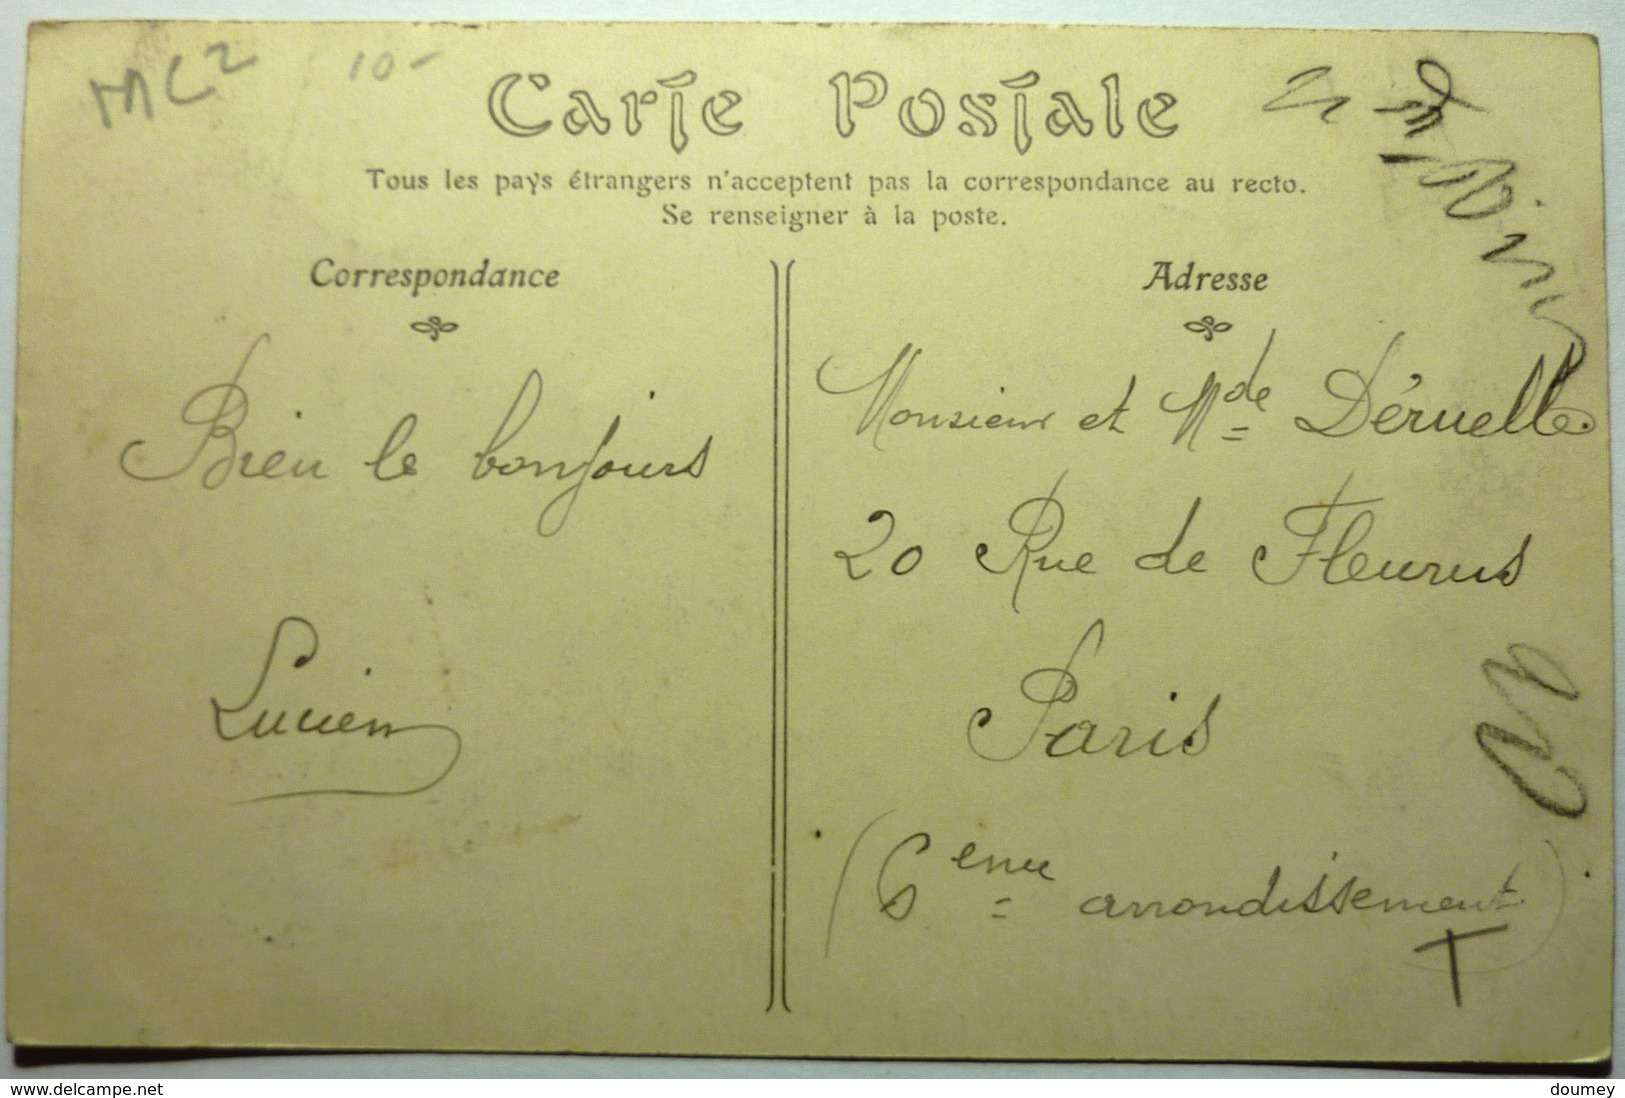 MC2 10-
Carte Postale
Tous les pays étrangers n'acceptent pas la correspondance au recto.
Se renseigner à la poste.
Correspondance
Bien le bonjours
Lucien
Adresse
Monsieur et Mde Déruelle.
20 Rue de Fleurus
Paris
(6eme arrondissement)
T
www.delcampe.net
doumey